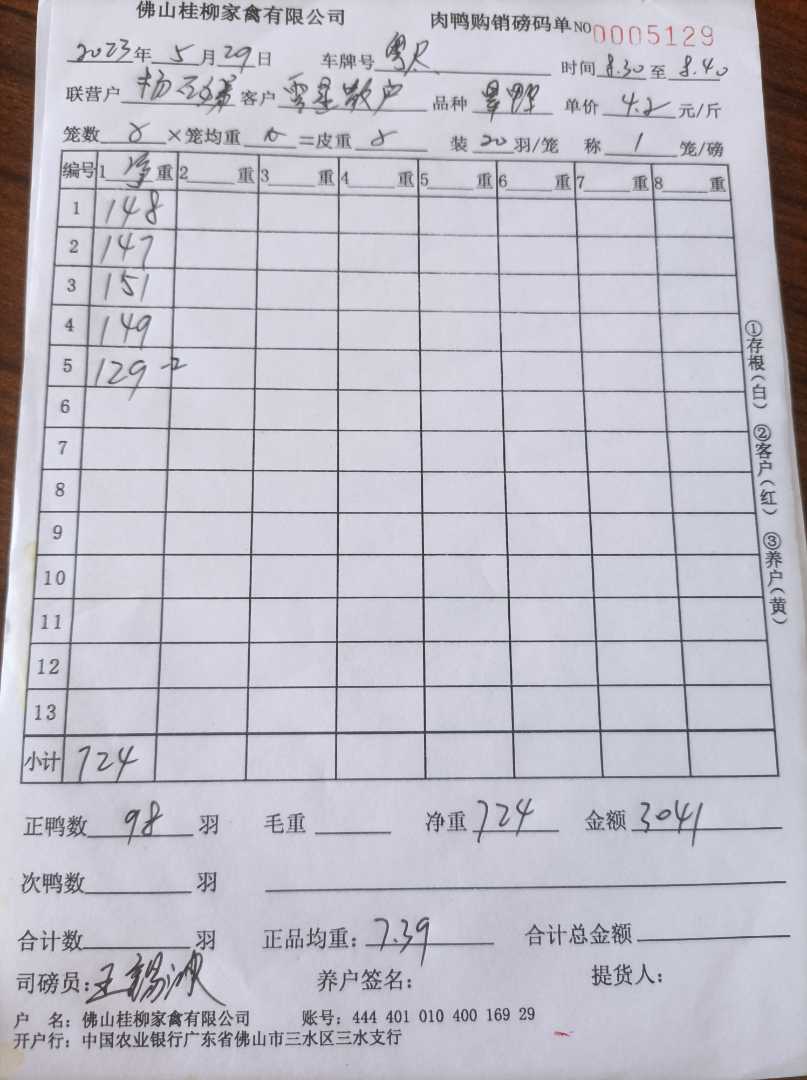 佛山桂柳家禽有限公司 肉鸭购销磅码单 NO 0005129
2023年5月29日 车牌号 粤 时间 8.30 至 8.40
联营户 杨 客户 零星散户 品种 单价 4.2 元/斤
笼数 ×笼均重 =皮重 装 20 羽/笼 称 1 笼/磅
编号 1 净 重 2 重 3 重 4 重 5 重 6 重 7 重 8 重
1 148
2 147
3 151
4 149
5 129 -2
6
7
8
9
10
11
12
13
小计 724
①存根(白) ②客户(红) ③养户(黄)
正鸭数 98 羽 毛重 净重 724 金额 3041
次鸭数 羽
合计数 羽 正品均重: 7.39 合计总金额
司磅员: 王锡 养户签名: 提货人:
户 名: 佛山桂柳家禽有限公司 账号: 444 401 010 400 169 29
开户行: 中国农业银行广东省佛山市三水区三水支行